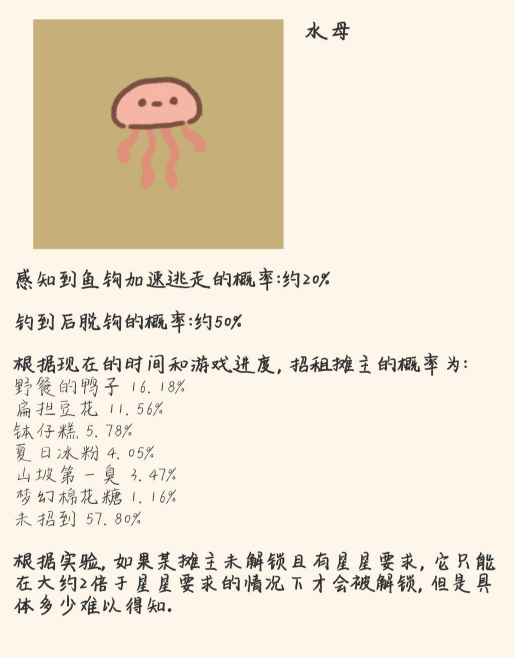 水母
感知到鱼钩加速逃走的概率:约20%
钓到后脱钩的概率:约50%
根据现在的时间和游戏进度, 招租摊主的概率为:
野餐的鸭子 16.18%
扁担豆花 11.56%
钵仔糕 5.78%
夏日冰粉 4.05%
山坡第一臭 3.47%
梦幻棉花糖 1.16%
未招到 57.80%
根据实验, 如果某摊主未解锁且有星星要求, 它只能
在大约2倍于星星要求的情况下才会被解锁, 但是具
体多少难以得知.